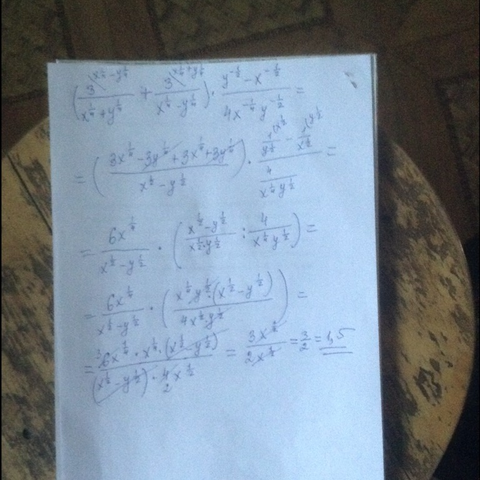 (3^{x^{1/4}-y^{1/4}}/(x^{1/4}+y^{1/4}) + 3^{x^{1/4}+y^{1/4}}/(x^{1/4}-y^{1/4})) · (y^{-1/2}-x^{-1/2})/(4x^{-1/4}y^{-1/2}) =
= ((3x^{1/4}-3y^{1/4}+3x^{1/4}+3y^{1/4})/(x^{1/2}-y^{1/2})) · (1^{x^{1/2}}/y^{1/2} - 1^{y^{1/2}}/x^{1/2})/(4/(x^{1/4}y^{1/2})) =
= 6x^{1/4}/(x^{1/2}-y^{1/2}) · ((x^{1/2}-y^{1/2})/(x^{1/2}·y^{1/2}) : 4/(x^{1/4}y^{1/2})) =
= 6x^{1/4}/(x^{1/2}-y^{1/2}) · (x^{1/4}·y^{1/2}·(x^{1/2}-y^{1/2})/(4x^{1/2}y^{1/2})) =
= 6x^{1/4}·x^{1/4}·(x^{1/2}-y^{1/2})/((x^{1/2}-y^{1/2})·4x^{1/2}) = 3x^{1/2}/(2x^{1/2}) = 3/2 = 1,5